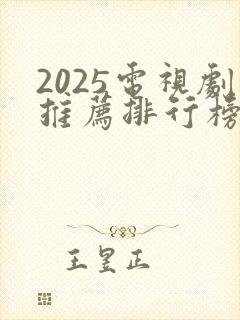 2025電視劇
推薦排行榜
王昱正